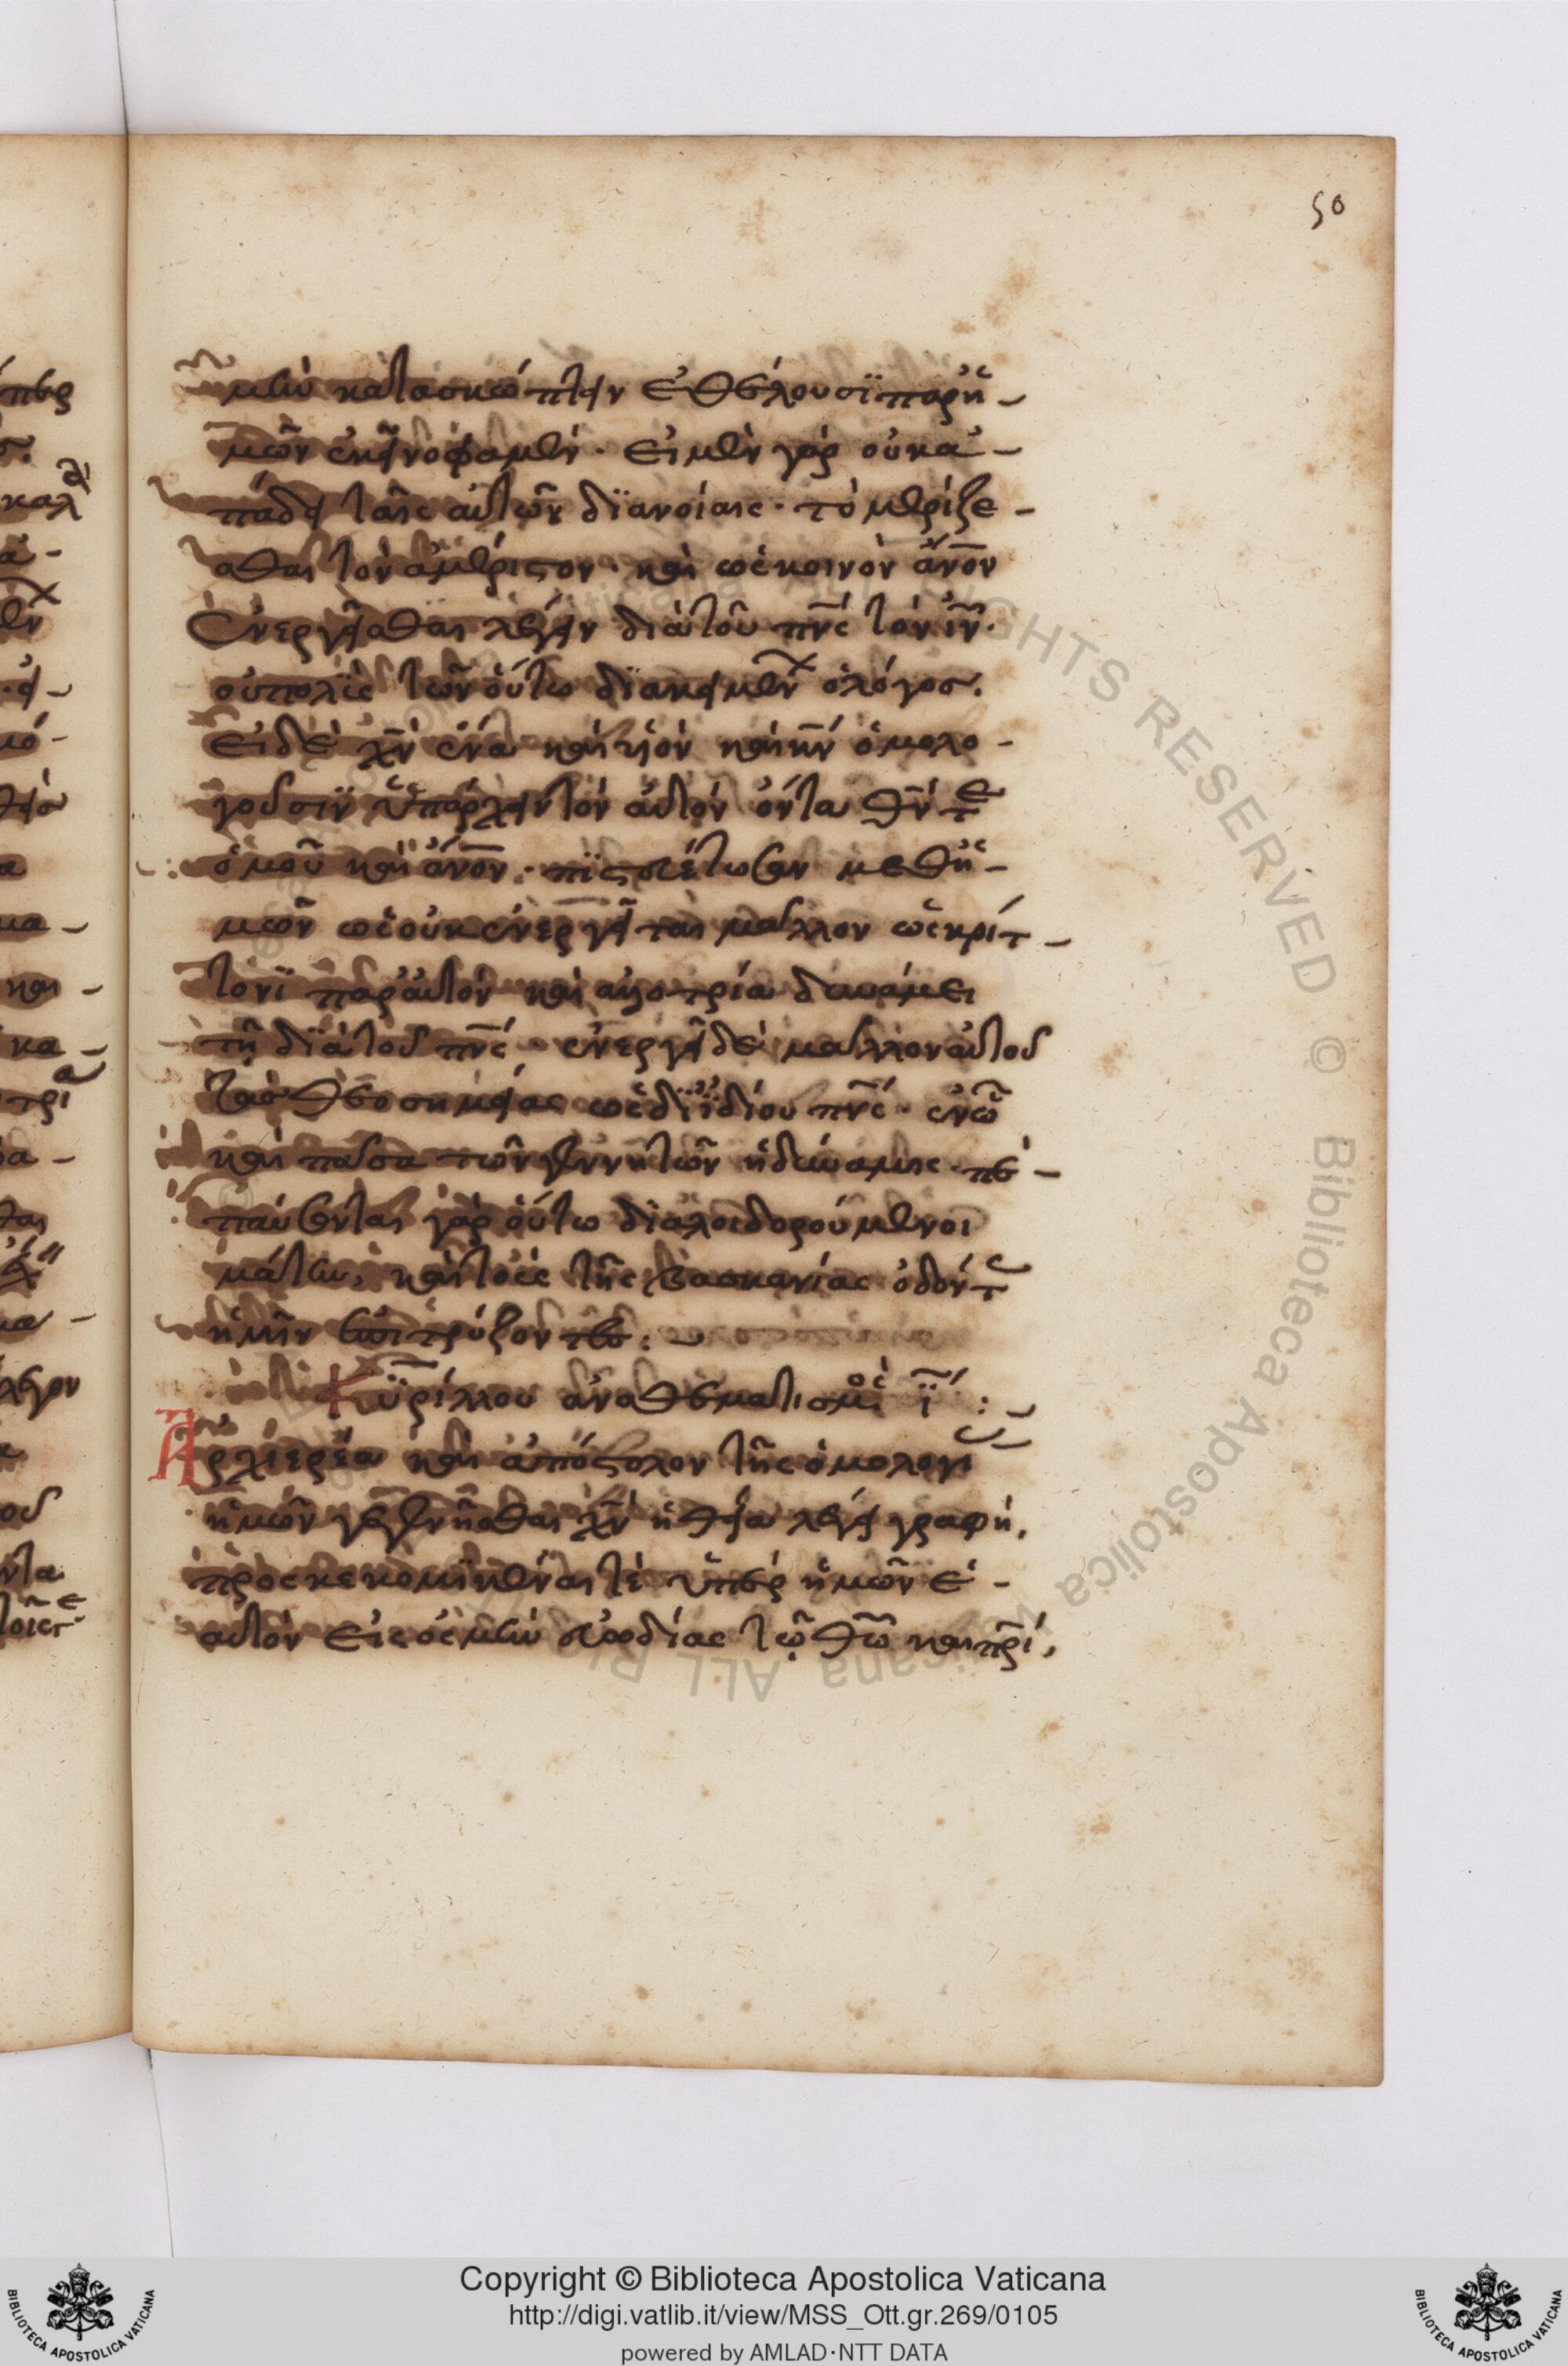 50
μὲν κατασκώπτειν ἐθέλουσϊ παρ' ἡ-
μῶν ἐκεῖνο φαμέν· εἰ μὲν γὰρ οὐκ ἀ-
πάδει ταῖς αὐτῶν δϊανοίαις· τὸ μερίζε-
σθαι τὸν ἀμέριστον· καὶ ὡς κοινὸν ἄνον
ἐνεργεῖσθαι λέγειν διὰ τοῦ πνς τὸν ιν·
οὐ πολὺς τῶν οὕτω δϊακειμεν ὁ λόγος.
εἰ δὲ χν ἕνα καὶ
ὁμολο-
γοῦσιν ὑπάρχειν τὸν αὐτὸν ὄντα θν τε
ὁμοῦ καὶ ἄνον· πϊστευέτωσαν μεθ' ἡ-
μῶν ὡς οὐκ ἐνεργεῖται μᾶλλον ὡς κρίτ-
τονϊ παρ' αὐτὸν καὶ ἀλλοτρία δυνάμει
τῇ δϊὰ τοῦ πνς· ἐνεργεῖ δὲ μᾶλλον αὐτὸς
τὰς θεοσημείας ὡς δϊ' ἰδίου πνς· ἐν ᾧ
καὶ πᾶσα τῶν γεννητῶν ἡ δύναμις· πέ-
παυνται γὰρ οὕτω δϊαλοιδορούμενοι
μάτην, καὶ τοὺς τῆς βασκανίας ὀδόντ
ἡμῖν ἐπιτρύζοντες:
Κϋρίλλου ἀναθεματισμὸς ϊ :
Ἀρχιερέα καὶ ἀπόστολον τῆς ὁμολογι
ἡμῶν γεγενῆσθαι χν ἡ θεία λέγει γραφή,
προσκεκομϊκέναι τὲ ὑπὲρ ἡμῶν ἑ-
αυτὸν εἰς ὀσμὴν εὐωδίας τῷ θῶ καὶ πρί,
Copyright © Biblioteca Apostolica Vaticana
http://digi.vatlib.it/view/MSS_Ott.gr.269/0105
powered by AMLAD·NTT DATA